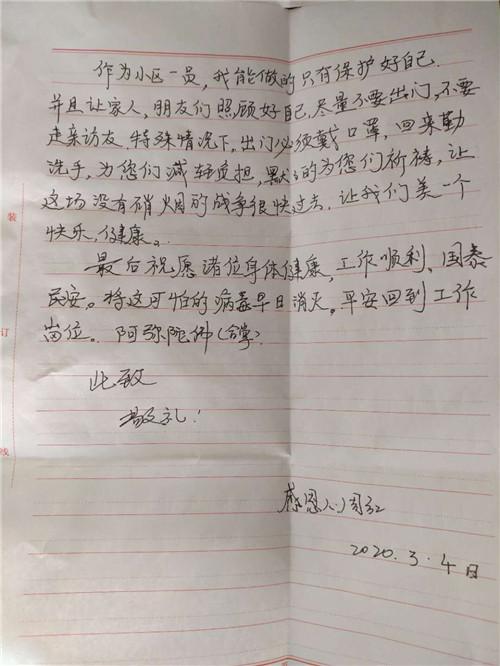 作为小区一员，我能做的只有保护好自己.
并且让家人，朋友们照顾好自己.尽量不要出门，不要
走亲访友.特殊情况下，出门必须戴口罩，回来勤
洗手，为您们减轻负担，默默的为您们祈祷，让
这场没有硝烟的战争很快过去.让我们美一个
快乐，健康。
最后祝愿诸位身体健康，工作顺利、国泰
民安。将这可怕的病毒早日消灭。平安回到工作
岗位。阿弥陀佛(合掌)
此致
敬礼！
感恩人：周红
2020.3.4日
装
订
线